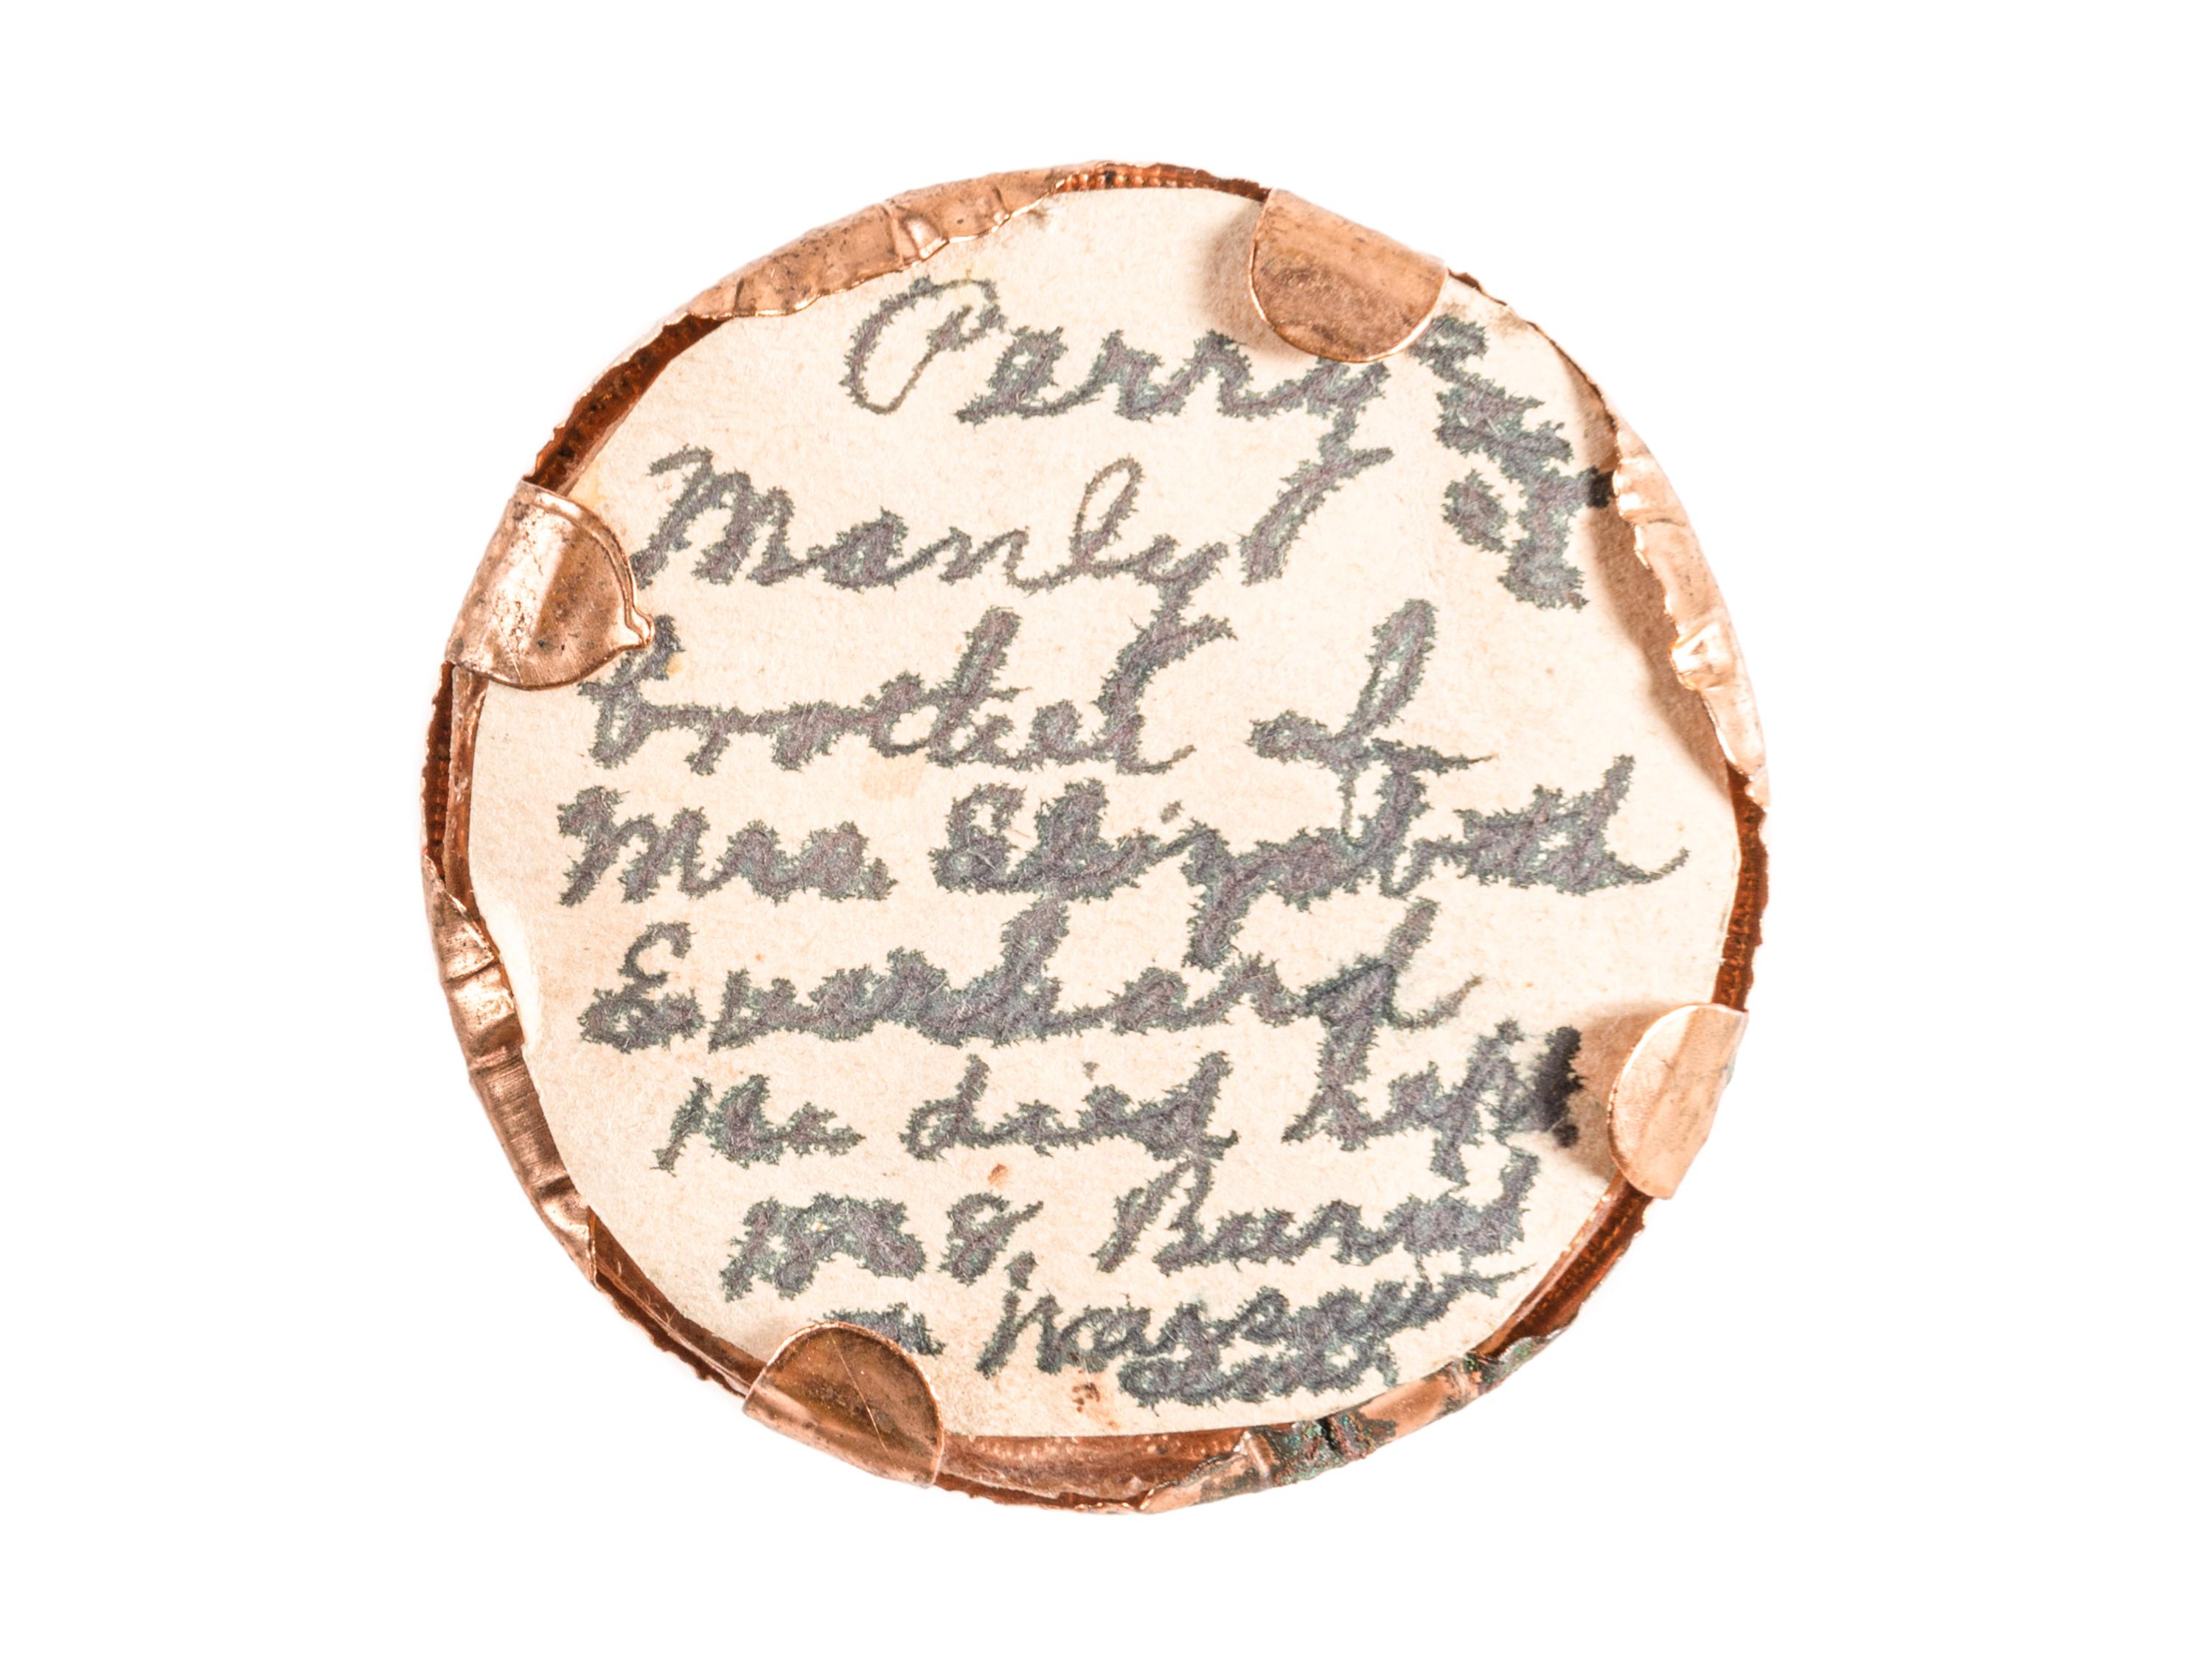 Perry
Manly
brother of
Mrs Elizabeth
Everhard
He died Sept
Buried
in Warsaw